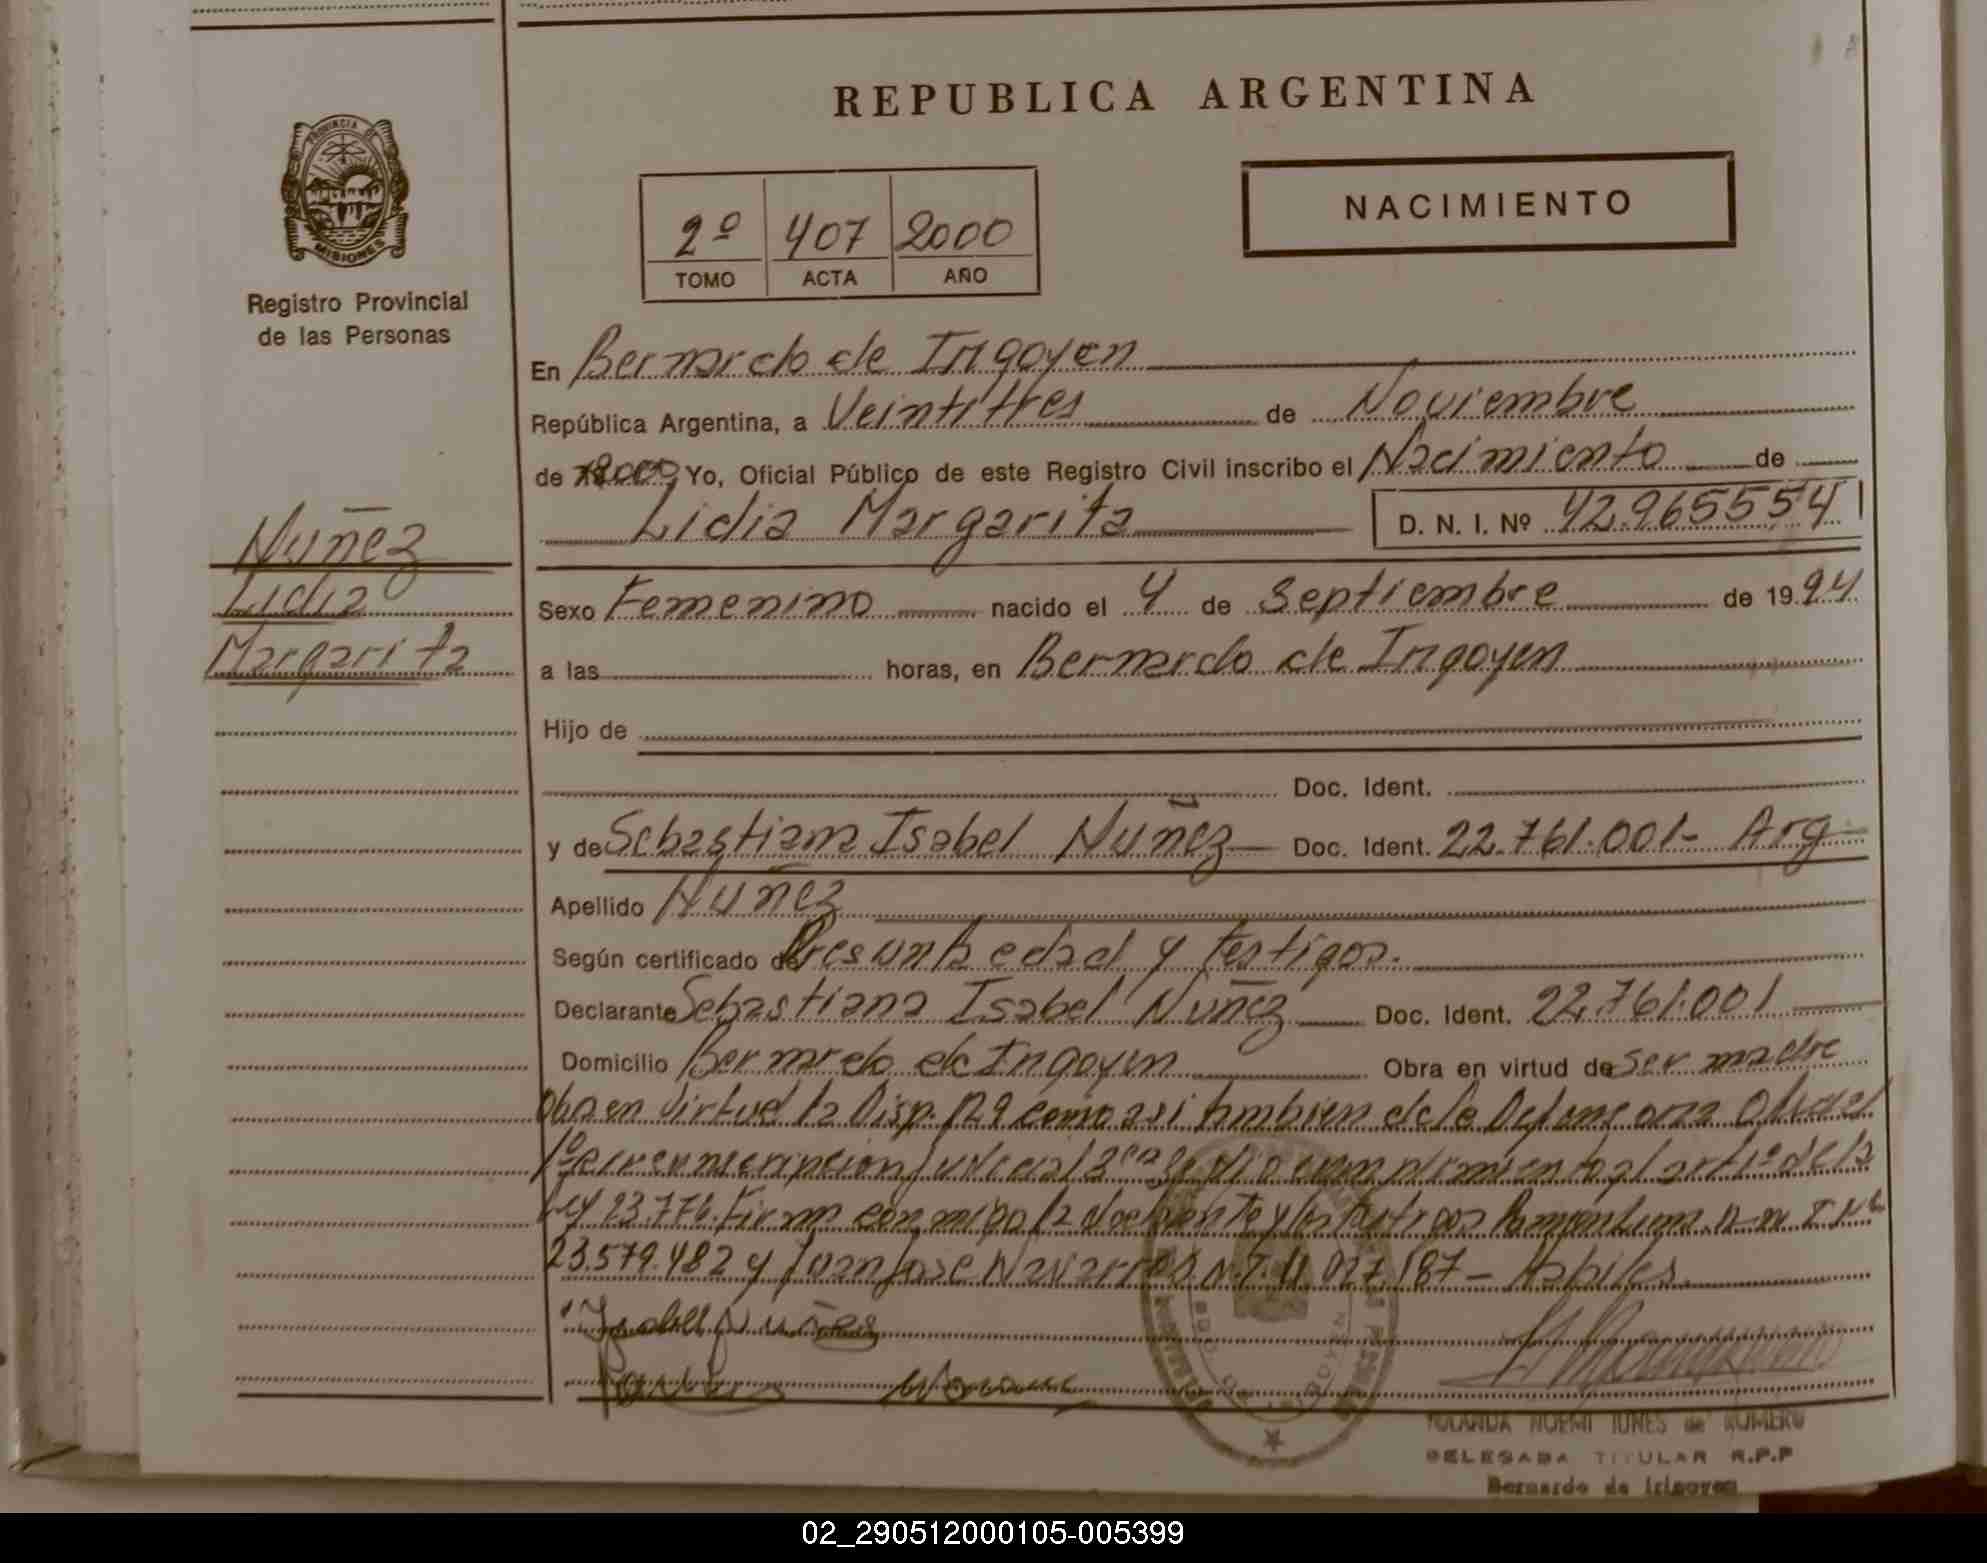 REPUBLICA ARGENTINA
PROVINCIA DE
MISIONES
Registro Provincial
de las Personas
NACIMIENTO
2º 407 2000
TOMO ACTA AÑO
En Bernardo de Irigoyen
República Argentina, a Veintitres de Noviembre
de 2000 Yo, Oficial Público de este Registro Civil inscribo el Nacimiento de
Lidia Margarita D. N. I. Nº 42.965554
Nuñez
Lidia
Margarita
Sexo Femenino nacido el 4 de Septiembre de 1994
a las horas, en Bernardo de Irigoyen
Hijo de
Doc. Ident.
y de Sebastiana Isabel Nuñez Doc. Ident. 22.761.001- Arg
Apellido Nuñez
Según certificado de Presunta edad y testigos.
Declarante Sebastiana Isabel Nuñez Doc. Ident. 22.761.001
Domicilio Bernardo de Irigoyen Obra en virtud de ser madre
en virtud la Disp. como asi tambien de la
Judicial cumplimiento al de la
Ley 23.776. Firman conmigo la y los testigos
23.579.482 y Juan Jose Navarro D.N.I. 11.027.187 - Habiles.
Isabel Nuñes
YOLANDA NOEMI IUNES de ROMERO
DELEGADA TITULAR R.P.P
Bernardo de Irigoyen
02_290512000105-005399